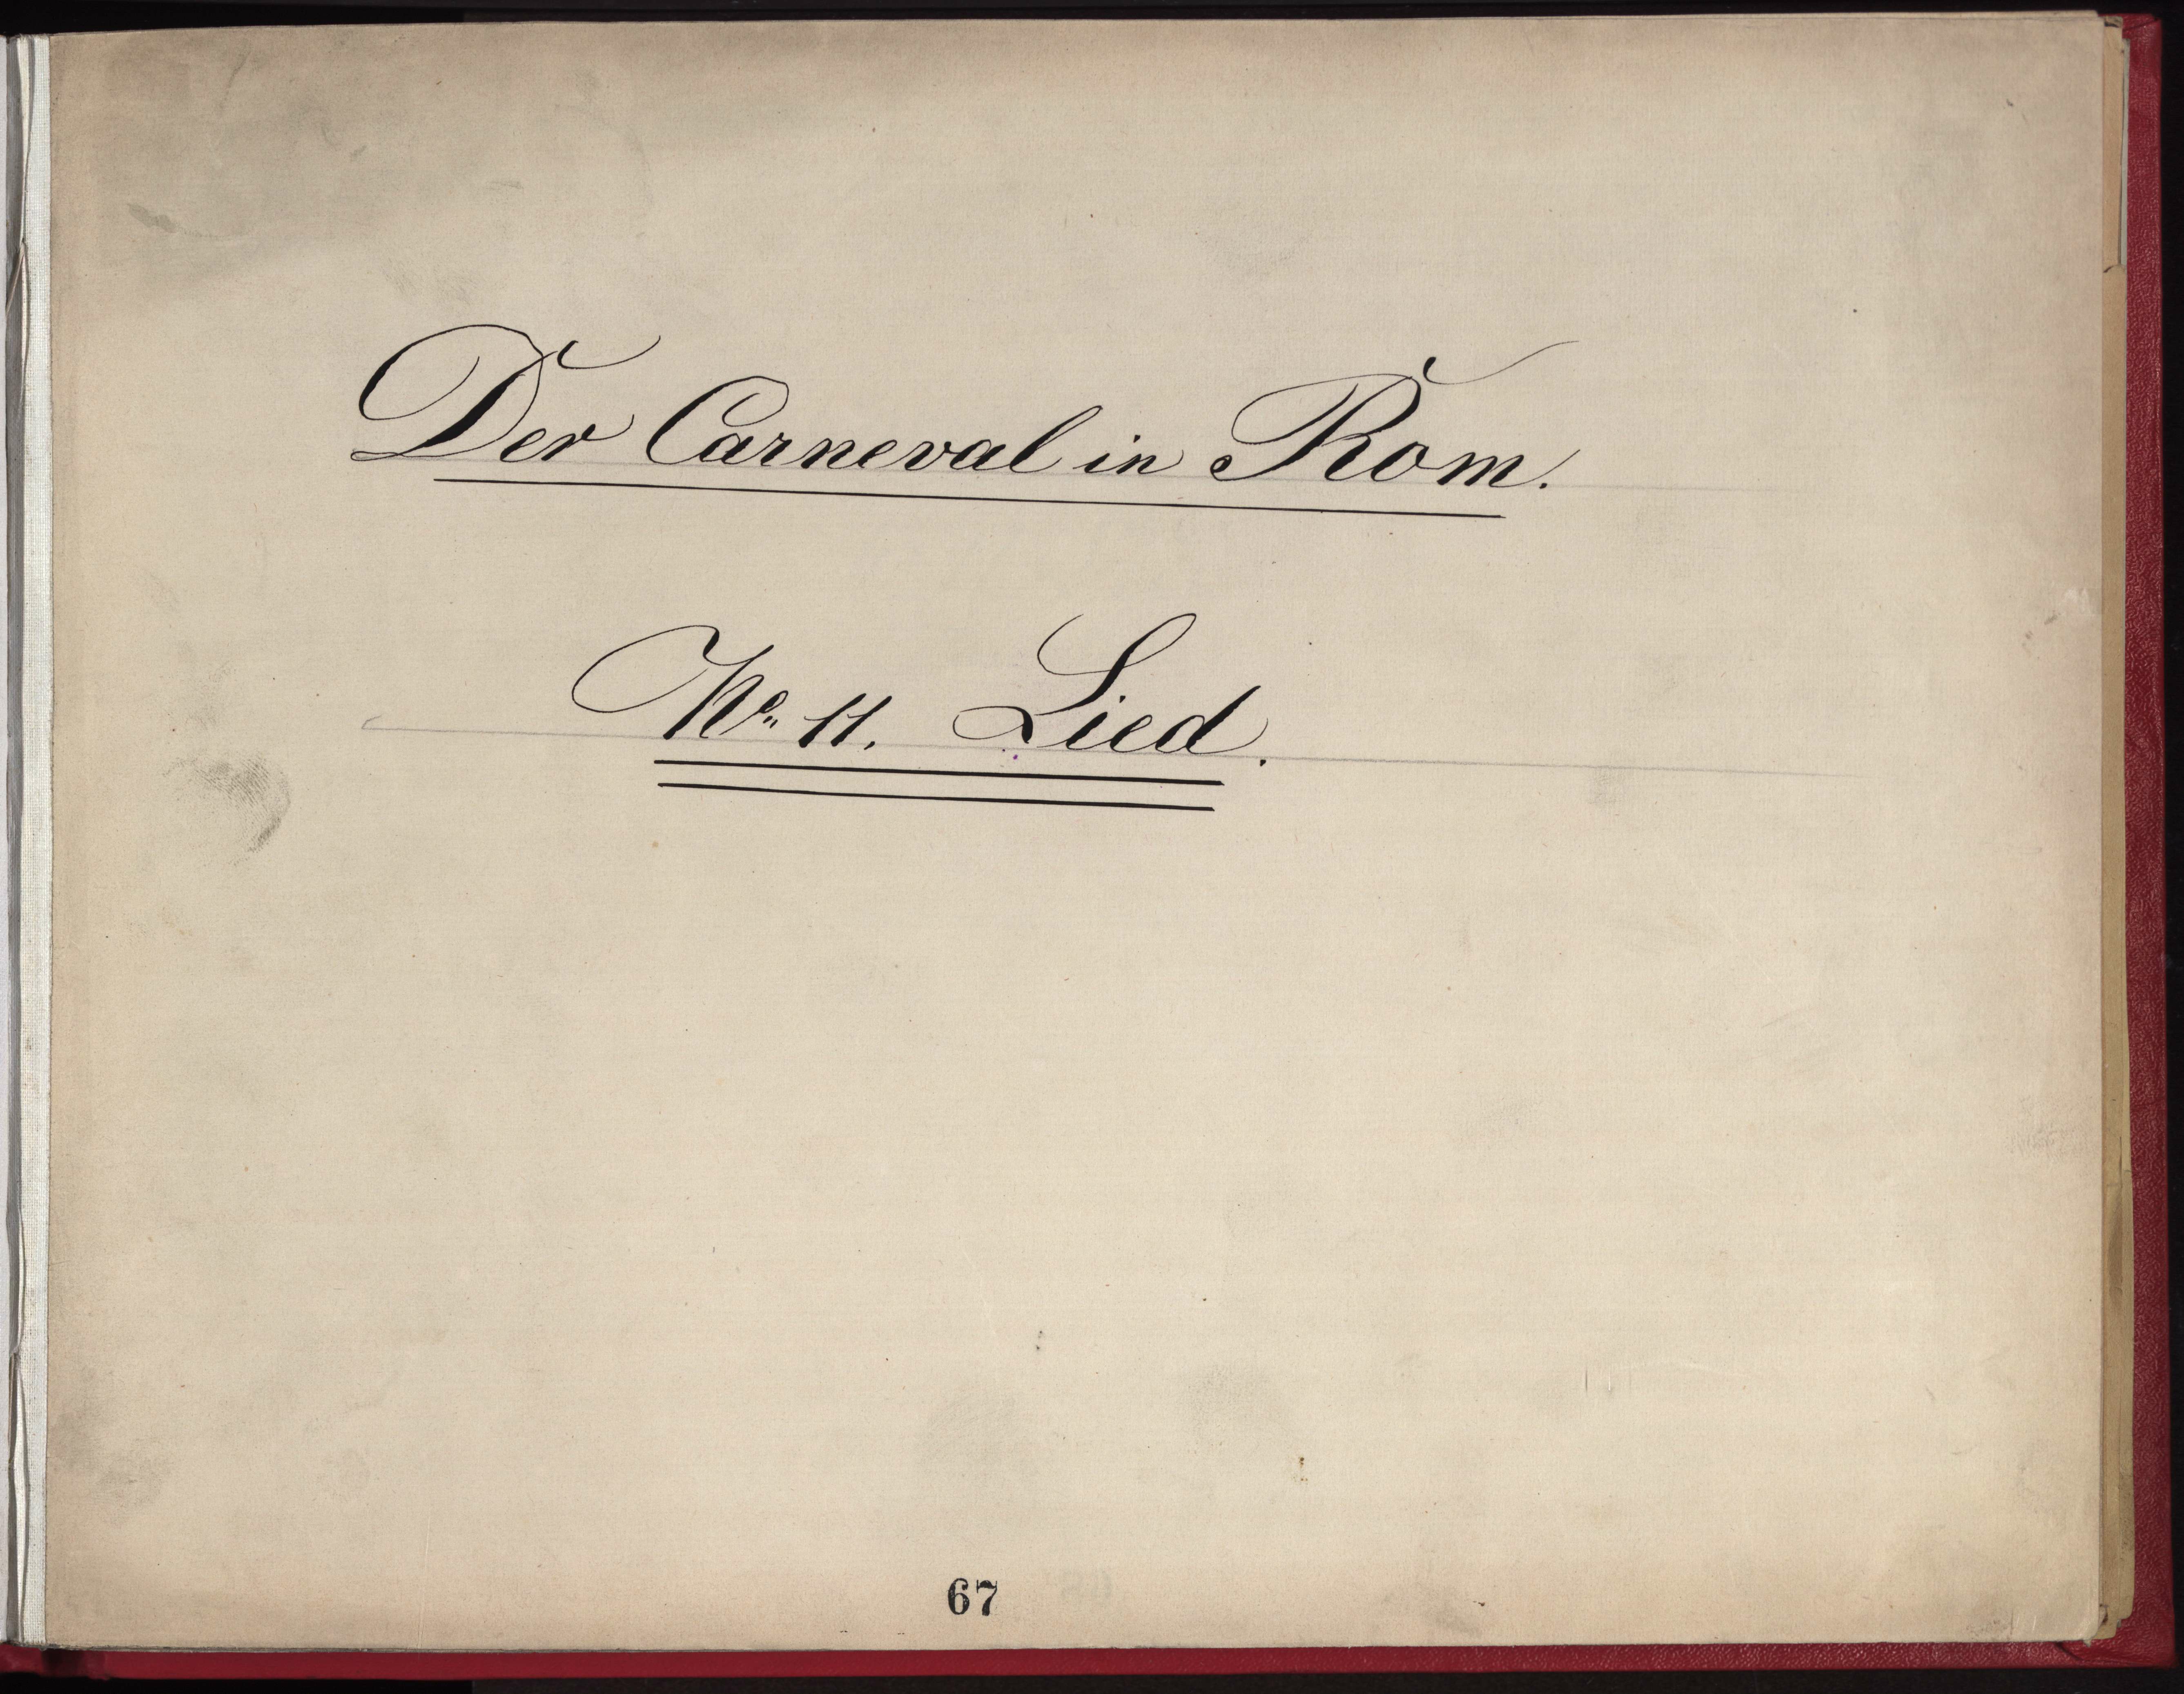 Der Carneval in Rom.
No. 11. Lied.
67